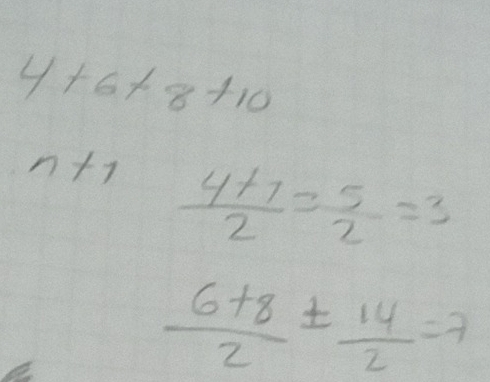 4+6+8+10
n+1
4+1/2 = 5/2 = 3
6+8/2 ± 14/2 = 7